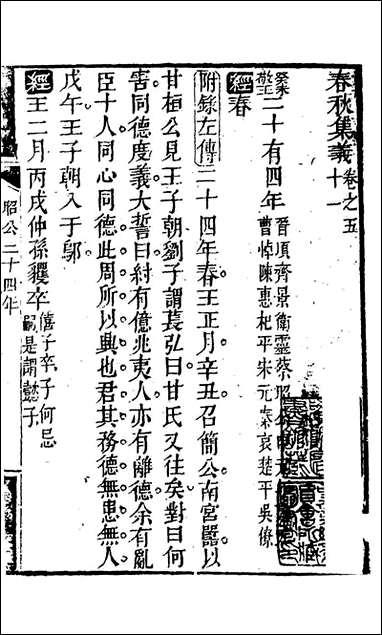 春秋集義十一卷之五
癸
敬王二十有四年 晉頃齊景衛靈蔡昭
曹悼陳惠杞平宋元秦哀楚平吳僚
經春
附錄左傳二十四年春王正月辛丑召簡公南宮嚚以
甘桓公見王子朝劉子謂萇弘曰甘氏又往矣對曰何
害同德度義大誓曰紂有億兆夷人亦有離德余有亂
臣十人同心同德此周所以興也君其務德無患無人
戊午王子朝入于鄔
經王二月丙戌仲孫貜卒 僖子卒子何忌
嗣是謂懿子
昭公二十四年